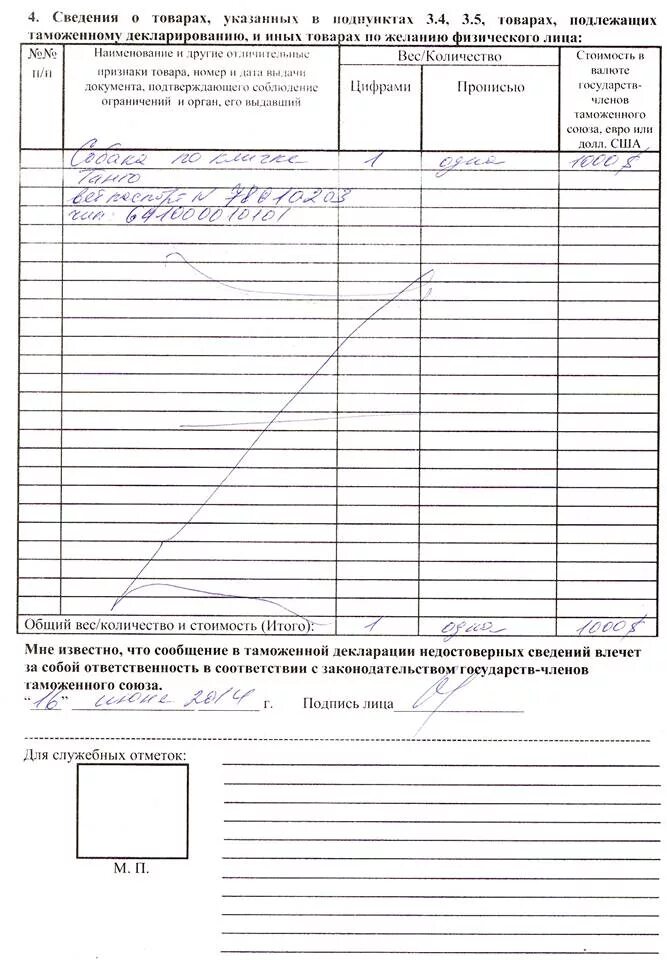 4. Сведения о товарах, указанных в подпунктах 3.4, 3.5, товарах, подлежащих
таможенному декларированию, и иных товарах по желанию физического лица:
№№
п/п
Наименование и другие отличительные
признаки товара, номер и дата выдачи
документа, подтверждающего соблюдение
ограничений и орган, его выдавший
Вес/Количество
Цифрами
Прописью
Стоимость в
валюте
государств-
членов
таможенного
союза, евро или
долл. США
Собака по кличке 1 одна 1000$
Танго
вет паспорт N 78010203
чип: 641000010101
Общий вес/количество и стоимость (Итого): 1 одна 1000$
Мне известно, что сообщение в таможенной декларации недостоверных сведений влечет
за собой ответственность в соответствии с законодательством государств-членов
таможенного союза.
"16" июня 2014 г. Подпись лица
Для служебных отметок:
М. П.